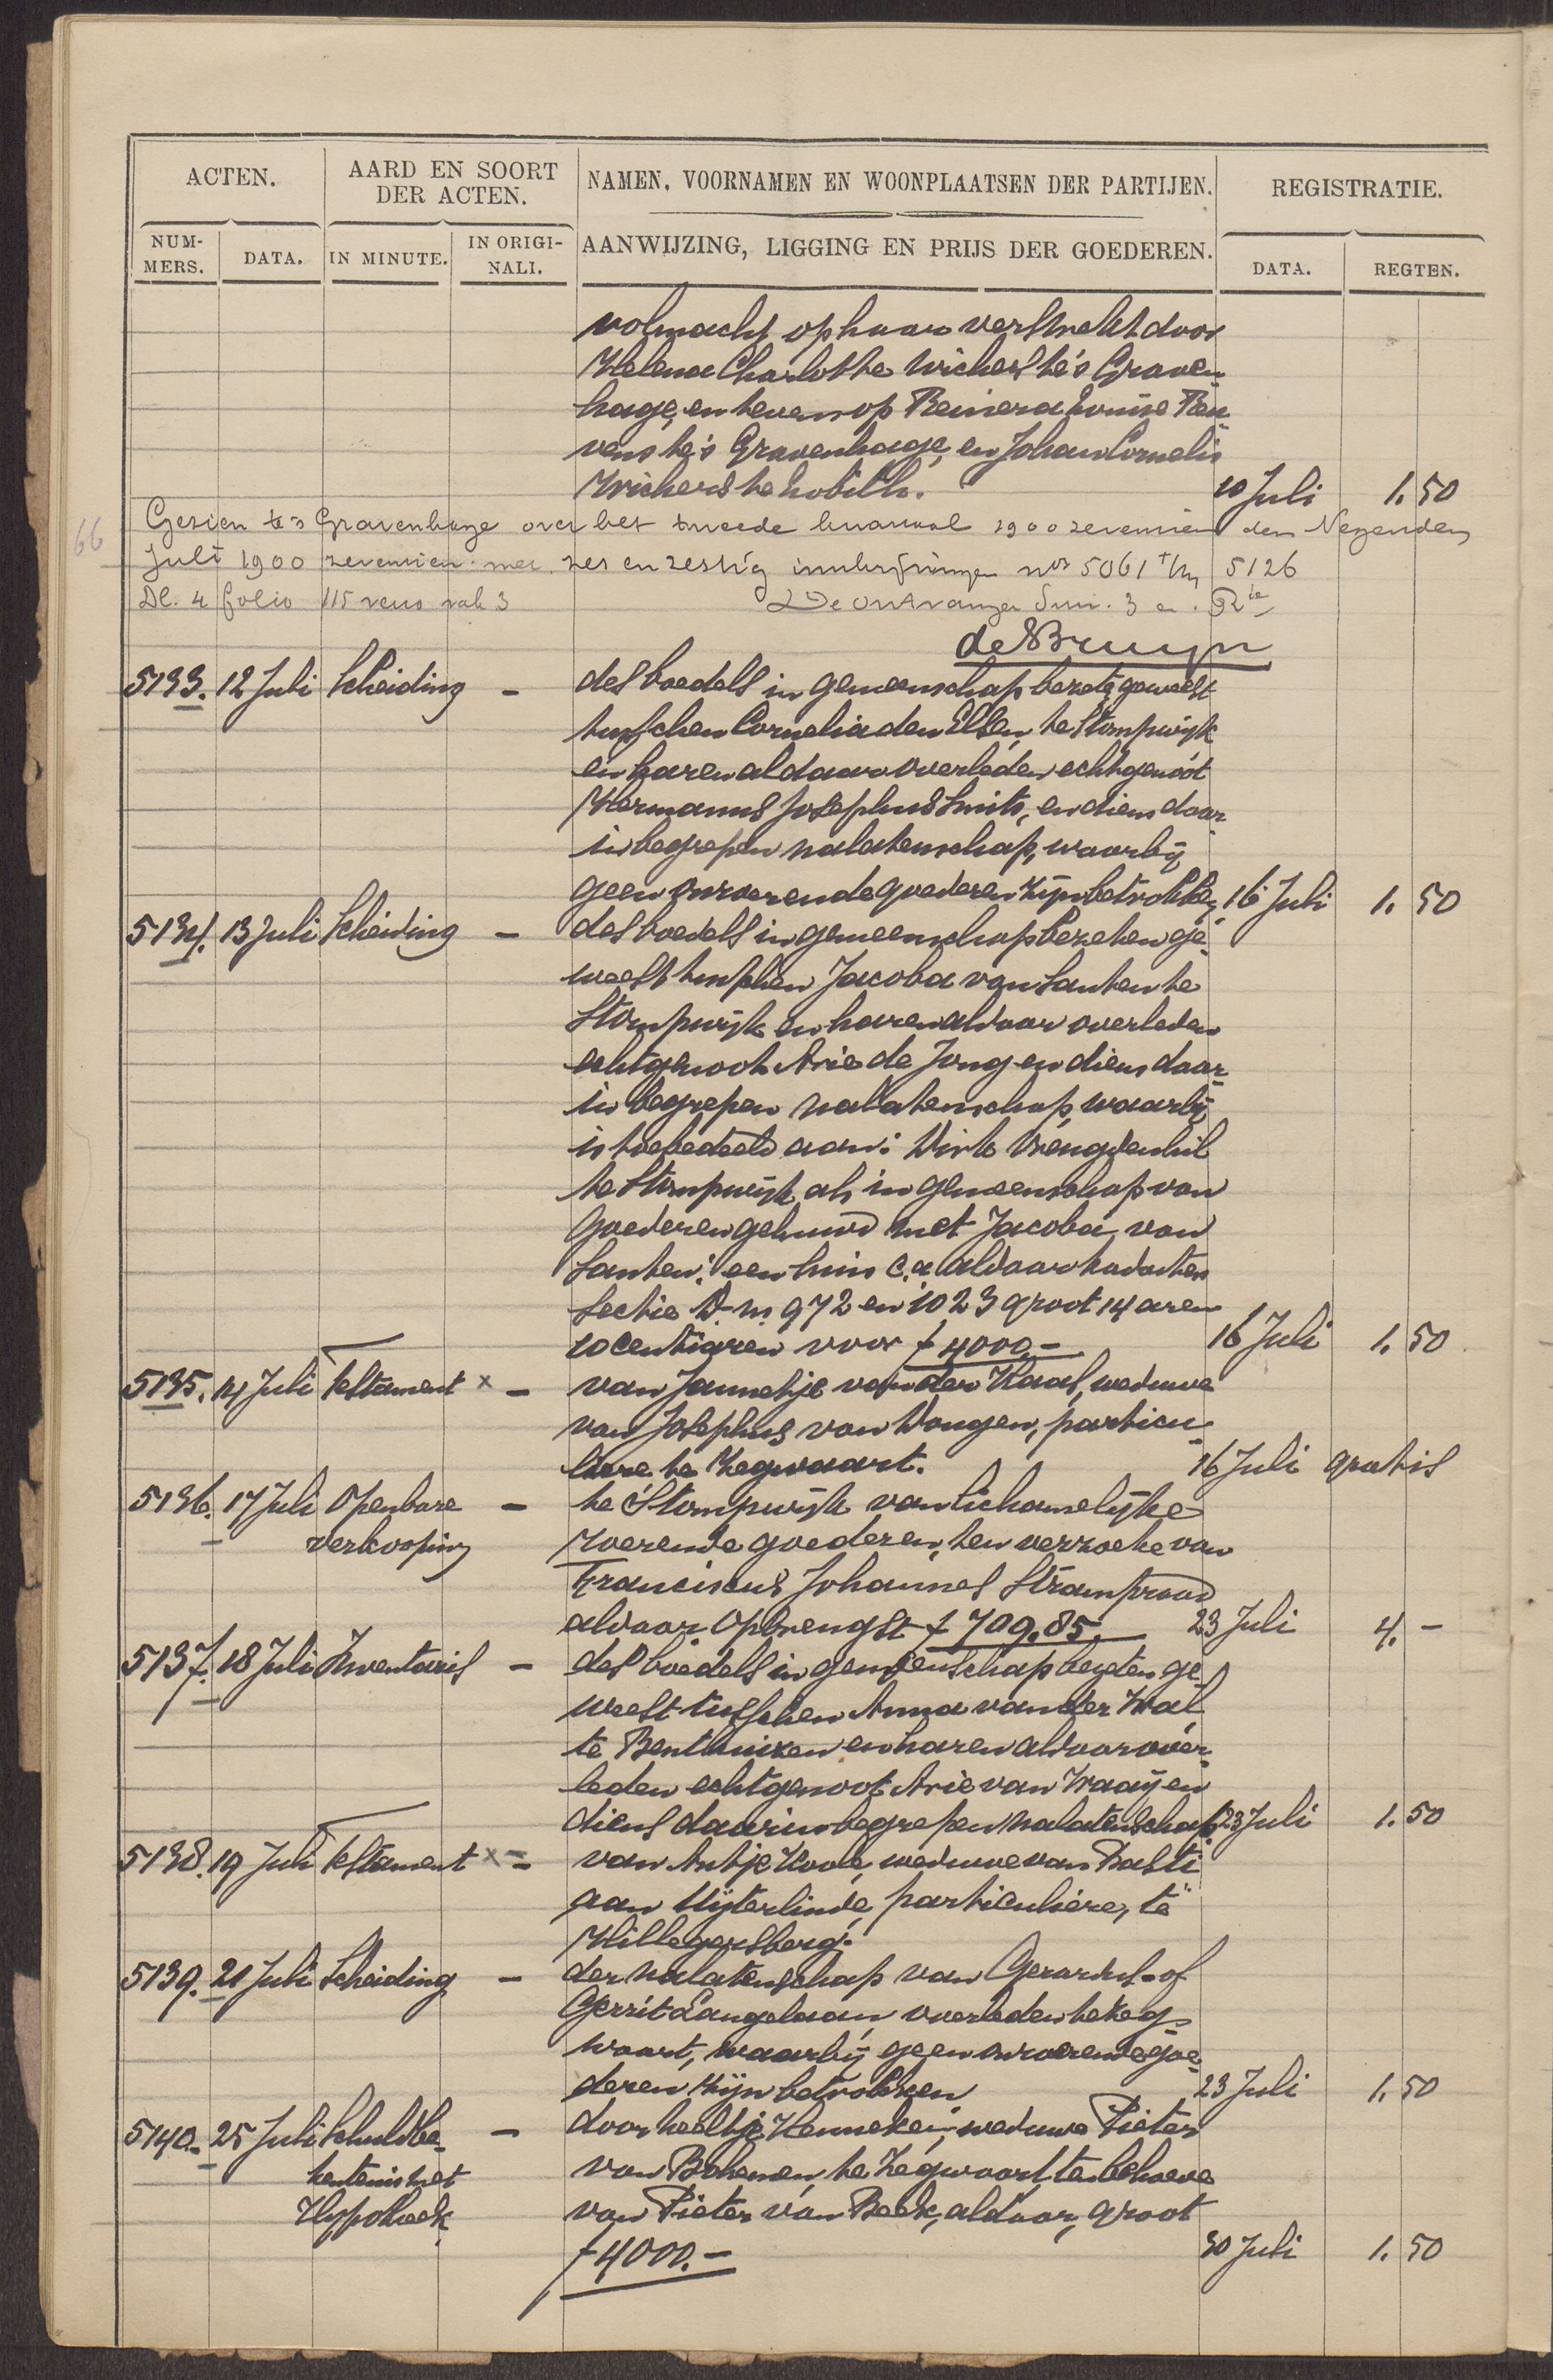 ACTEN.
AARD EN SOORT
DER ACTEN.
NAMEN, VOORNAMEN EN WOONPLAATSEN DER PARTIJEN.
REGISTRATIE.
NUM-
MERS.
DATA.
IN MINUTE.
IN ORIGI-
NALI.
AANWIJZING, LIGGING EN PRIJS DER GOEDEREN.
DATA.
REGTEN.
volmacht op haar verstrekt door
Helena Charlotte Wichers te 's Graven-
hage, en tevens op Reinera Louise Reu-
vens te 's Gravenhage, en Johan Cornelis
Wichers te Lobith. 10 Juli 1.50
66
Gezien te 's Gravenhage over het tweede kwartaal 1900 den Negenden
Juli 1900 met zes en zestig inschrijvingen nos 5061 t/m 5126
Dl. 4 folio 115 verso vak 3 De Ontvanger
de Bruyn
5133. 12 Juli Scheiding – des boedels in gemeenschap bezeten geweest
tusschen Cornelia den Elsen, te Stompwijk
en haren aldaar overleden echtgenoot
Hermanus Josephus Smits, en diens daar-
in begrepen nalatenschap, waarbij
geen onroerende goederen zijn betrokken 16 Juli 1.50
5134. 13 Juli Scheiding – des boedels in gemeenschap bezeten ge-
weest tusschen Jacoba van Santen te
Stompwijk en haren aldaar overleden
echtgenoot Arie de Jong en diens daar-
in begrepen nalatenschap, waarbij
is toebedeeld aan: Dirk Vreugdenhil
te Stompwijk als in gemeenschap van
goederen gehuwd met Jacoba van
Santen: een huis c.a. aldaar kadaster
Sectie D. ns 972 en 1023 groot 14 aren
20 centiaren voor f 4000.– 16 Juli 1.50
5135. 14 Juli Testament x – van Jannetje van der Kaal, weduwe
van Josephus van Dongen, particu-
liere te Zegwaart. 16 Juli gratis
5136. 17 Juli Openbare – te Stompwijk van lichamelijke
verkooping roerende goederen, ten verzoeke van
Franciscus Johannes Stramproad
aldaar Opbrengst f 709.85. 23 Juli 4.–
5137. 18 Juli Inventaris – des boedels in gemeenschap bezeten ge-
weest tusschen Anna van der Wal
te Benthuizen en haren aldaar over-
leden echtgenoot Arie van Waaij en
diens daarin begrepen nalatenschap 23 Juli 1.50
5138. 19 Juli Testament x – van Antje Kool, weduwe van Basti-
aan Uijterlinde, particuliere, te
Hillegersberg.
5139. 21 Juli Scheiding – der nalatenschap van Gerardus of
Gerrit Langelaan, overleden te Zeg-
waart, waarbij geen onroerende goe-
deren zijn betrokken 23 Juli 1.50
5140. 25 Juli Schuldbe- – door Neeltje Henneken, weduwe Pieter
kentenis met van Bohemen, te Zegwaart, ten behoeve
Hypotheek van Pieter van Beek, aldaar, groot
f 4000.– 30 Juli 1.50